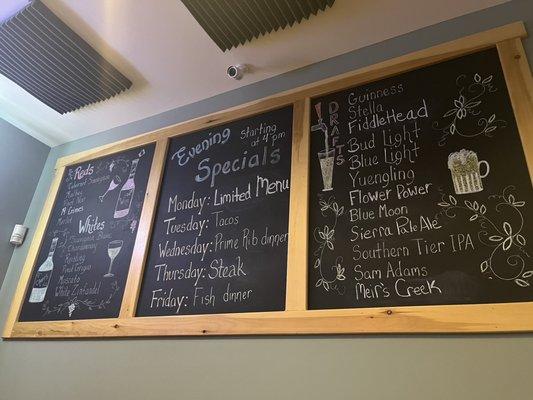 Reds
Cabernet Sauvignon
Merlot
Malbec
Pinot Noir
14 Crimes
Merlo
Whites
Sauvignon Blanc
Chardonnay
Riesling
Pinot Grigio
Moscato
White Zinfandel
Evening
Specials
Starting
at 4 pm
Monday: Limited Menu
Tuesday: Tacos
Wednesday: Prime Rib dinner
Thursday: Steak
Friday: Fish dinner
DRAFTS
Guinness
Stella
FiddleHead
Bud Light
Blue Light
Yuengling
Flower Power
Blue Moon
Sierra Pale Ale
Southern Tier IPA
Sam Adams
Meir's Creek